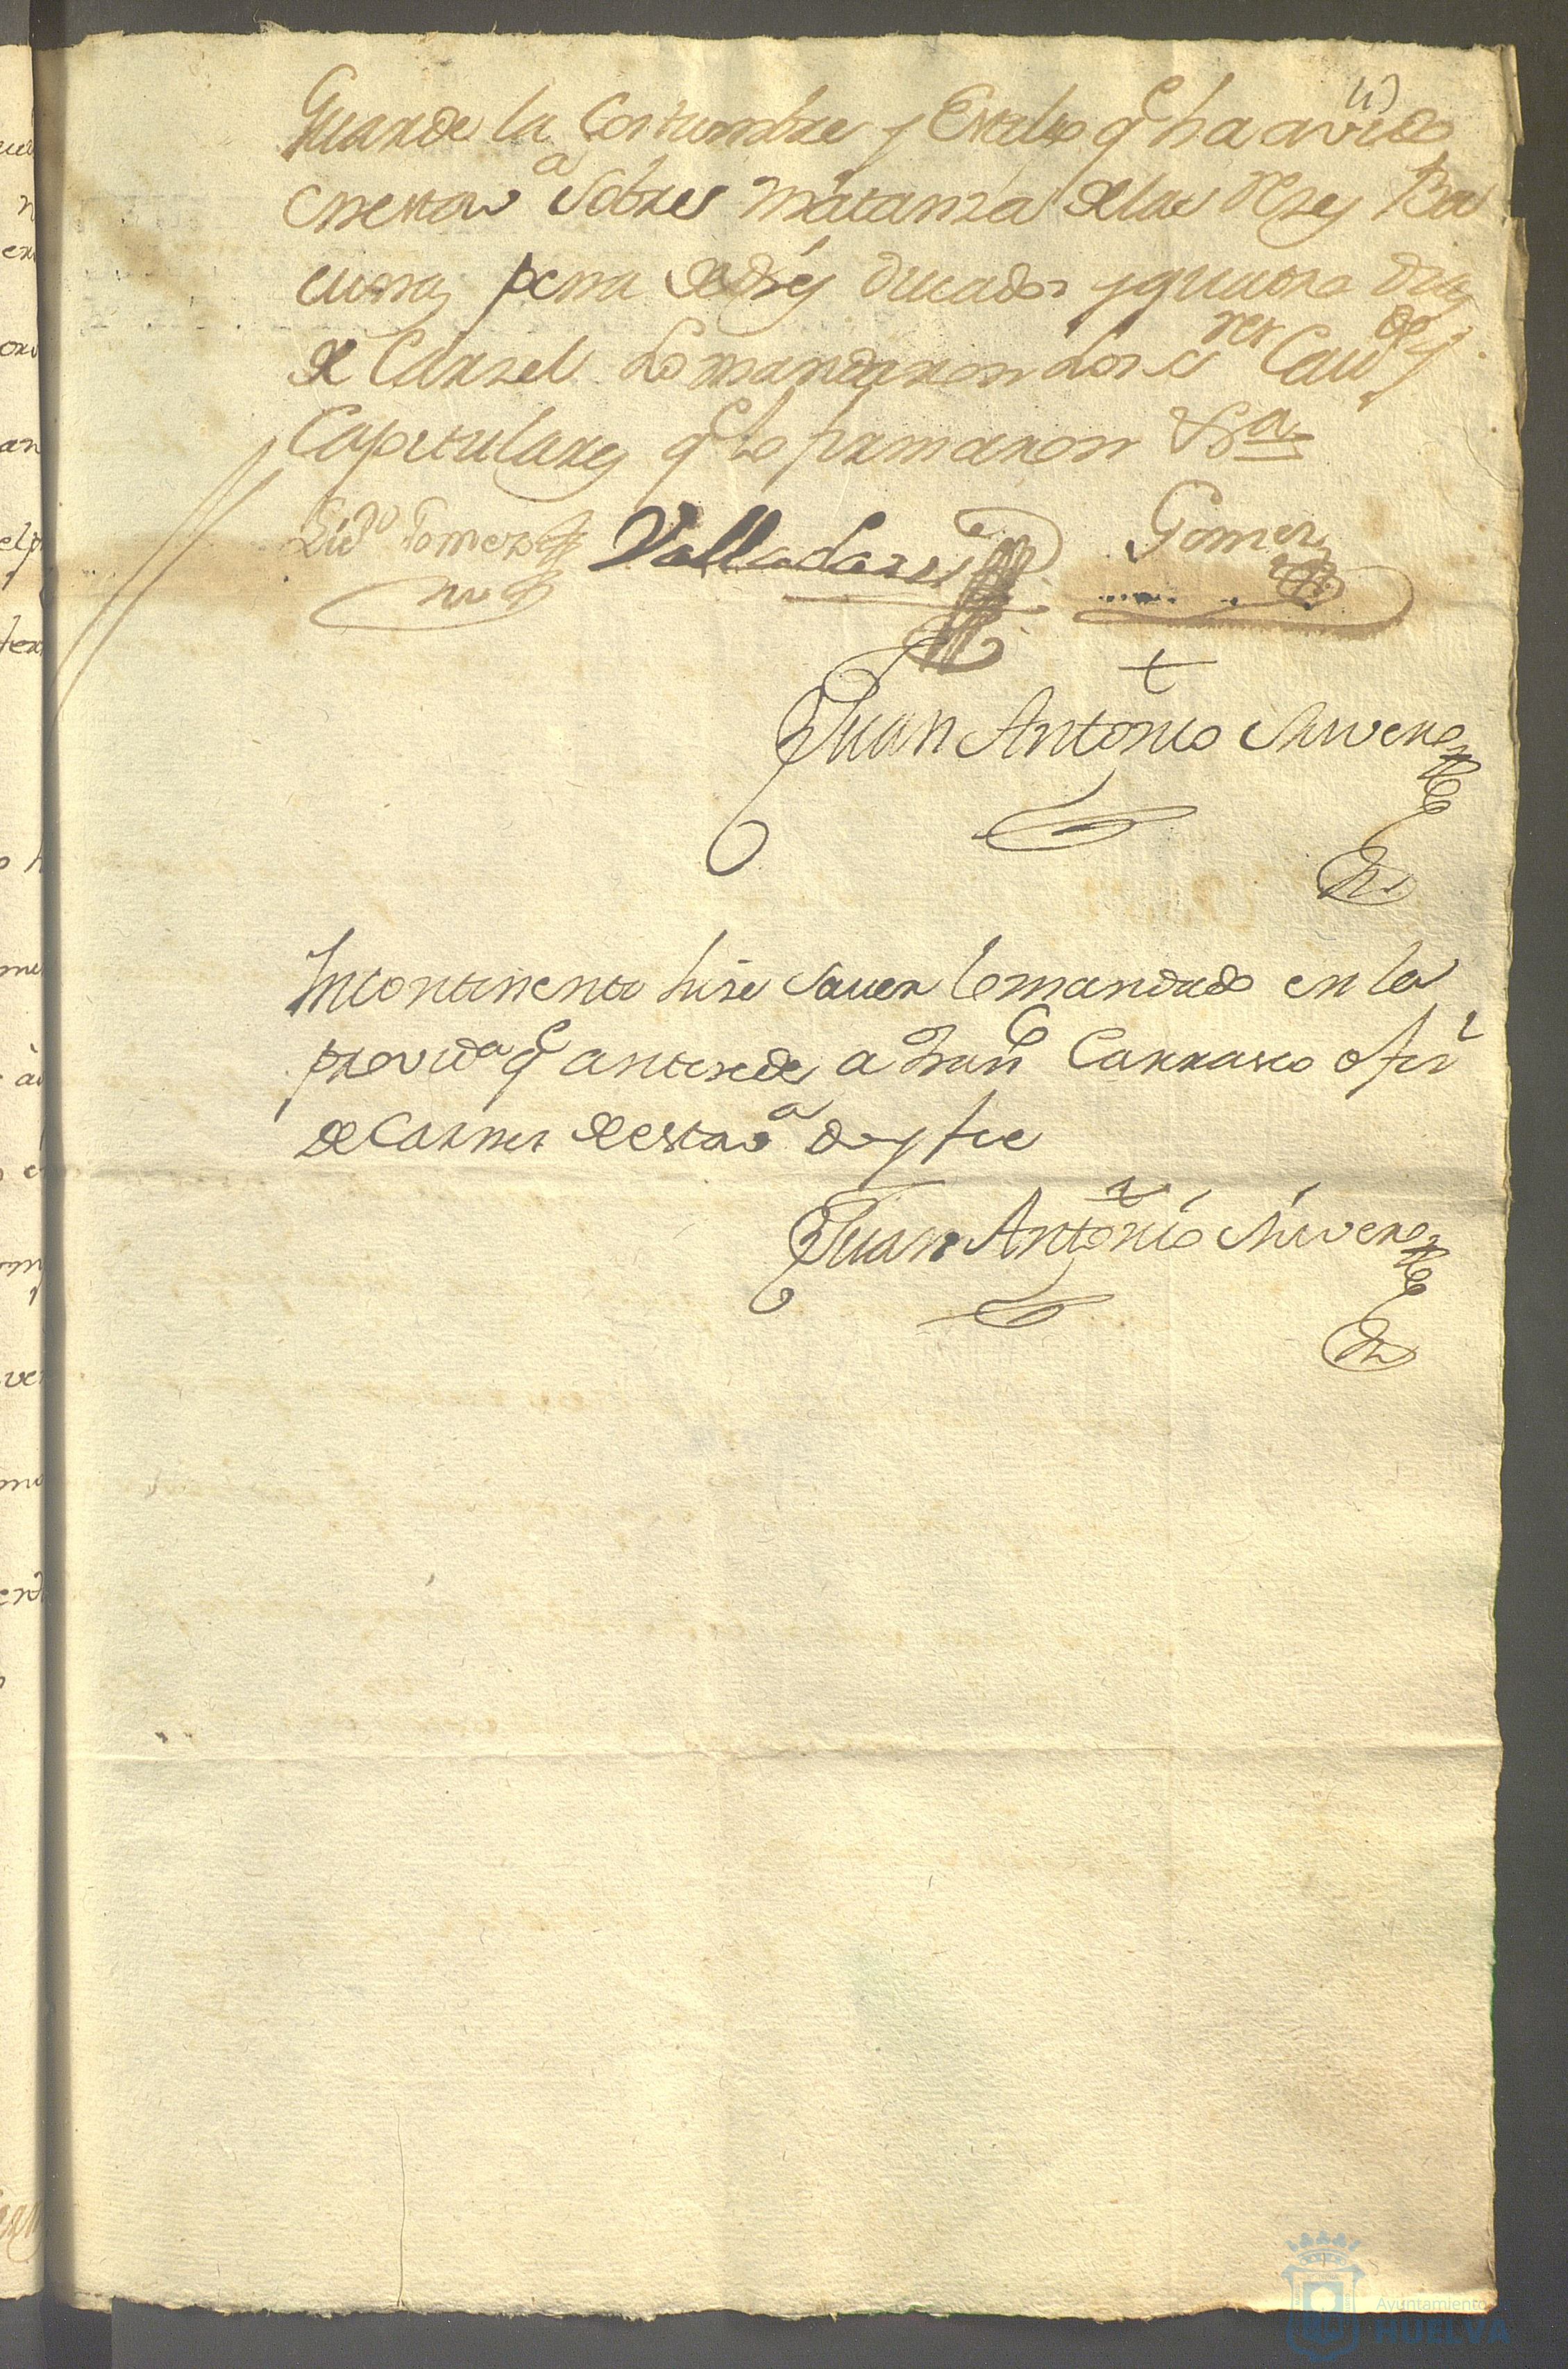 (1)
Guarde la Costumbre y Estilo q̃ ha avido
en esta v.ª sobre Matanza de las Reses Ba
cunas pena de dies ducados y quatro dias
de Carzel Lo mandaron Los ss.res Cau.do y
Capitulares q̃ lo firmaron &.ª
Liz.do Gomez Valladares Gomez
Juan Antonio
Incontinenti hise saver lo mandado en la
provid.ª q̃ antesede a Fran.co Carrasco
de Carnes de esta v.ª doy fee
Juan Antonio
Ayuntamiento de
HUELVA